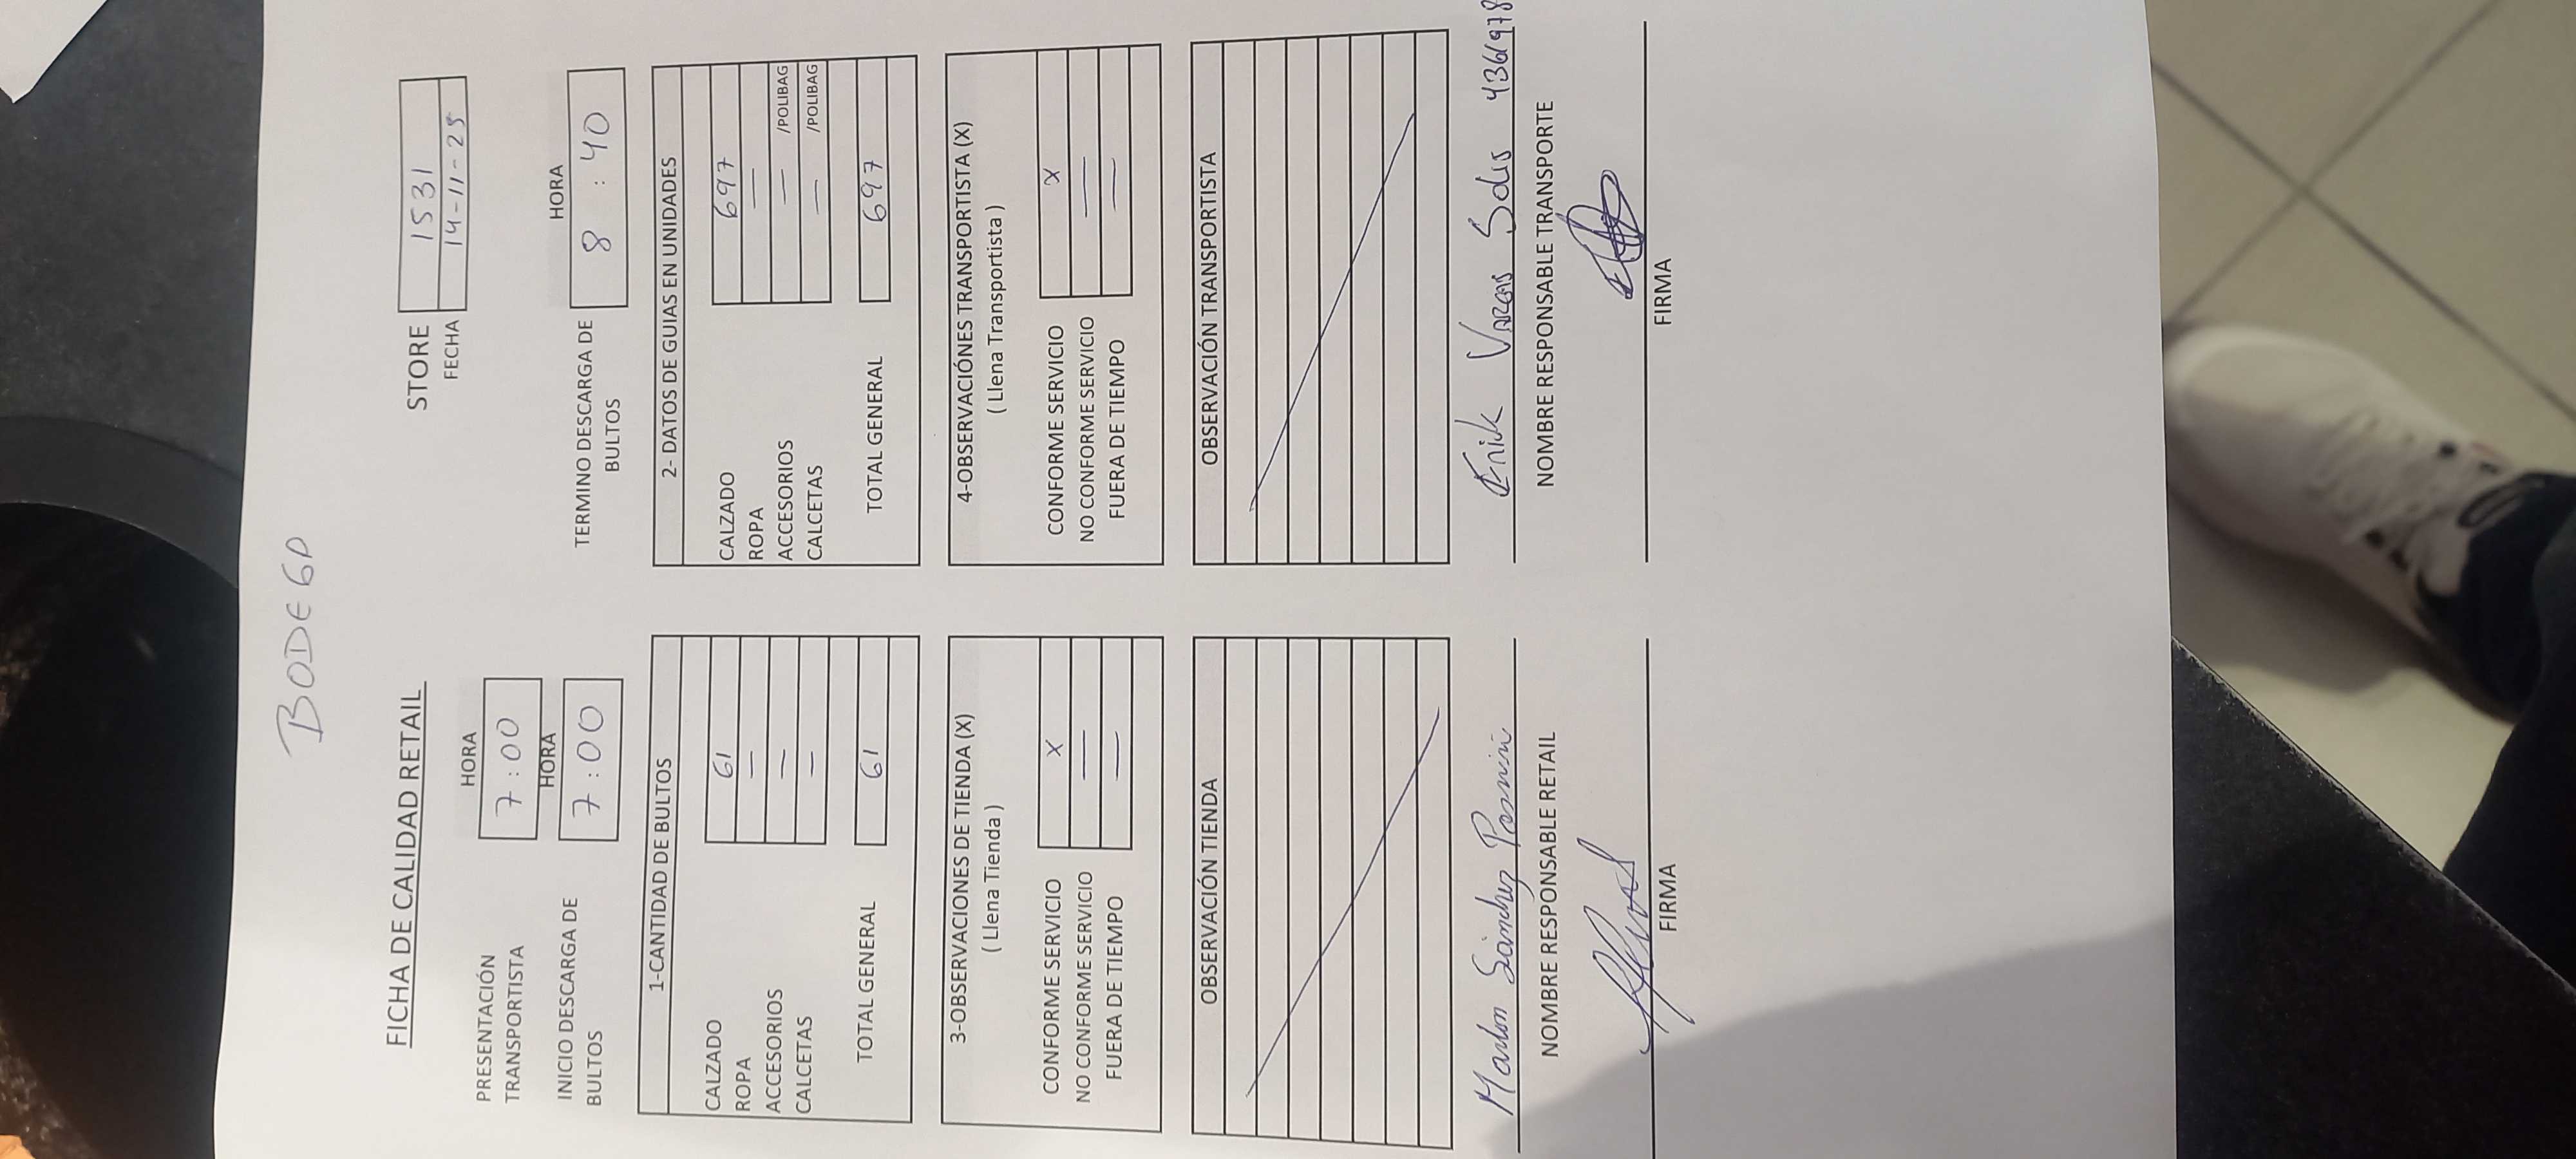 BODEGA
FICHA DE CALIDAD RETAIL
STORE 1531
FECHA 14-11-25
PRESENTACIÓN TRANSPORTISTA HORA 7:00
INICIO DESCARGA DE BULTOS HORA 7:00
TERMINO DESCARGA DE BULTOS HORA 8:40
1-CANTIDAD DE BULTOS
CALZADO 61
ROPA —
ACCESORIOS —
CALCETAS —
TOTAL GENERAL 61
2- DATOS DE GUIAS EN UNIDADES
CALZADO 697
ROPA —
ACCESORIOS — /POLIBAG
CALCETAS — /POLIBAG
TOTAL GENERAL 697
3-OBSERVACIONES DE TIENDA (X)
( Llena Tienda )
CONFORME SERVICIO X
NO CONFORME SERVICIO —
FUERA DE TIEMPO —
4-OBSERVACIÓNES TRANSPORTISTA (X)
( Llena Transportista )
CONFORME SERVICIO X
NO CONFORME SERVICIO —
FUERA DE TIEMPO —
OBSERVACIÓN TIENDA
OBSERVACIÓN TRANSPORTISTA
Marlon Sánchez
NOMBRE RESPONSABLE RETAIL
FIRMA
Erik Vargas Solis 43661978
NOMBRE RESPONSABLE TRANSPORTE
FIRMA